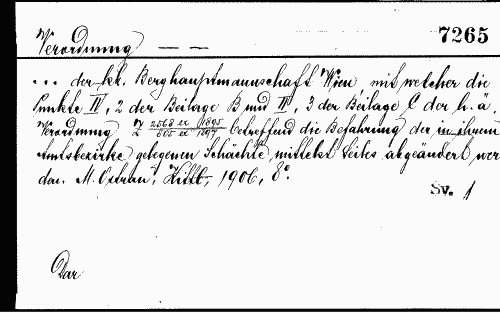 7265
Verordnung — —
... der kk. Berghauptmannschaft Wien, mit welcher die
Punkte IV, 2 der Beilage B und II, 3 der Beilage C der h. ä.
Verordnung Z 2563 ex 1895 / 505 ex 1897 betreffend die Befahrung der in ihrem
Amtsbezirke gelegenen Schächte mittelst Seiles abgeändert wer
den. M. Ostrau, Kittl, 1906, 8°.
Sv. 1
Dar